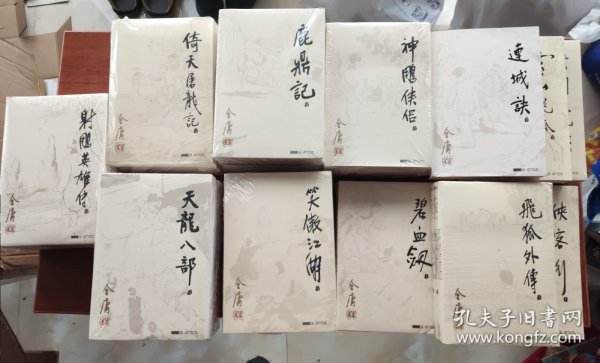 倚天屠龍記
金庸
鹿鼎記
金庸
神鵰俠侶
金庸
連城訣
金庸
射鵰英雄傳
金庸
天龍八部
金庸
笑傲江湖
金庸
碧血劍
金庸
飛狐外傳
金庸
俠客行
孔夫子旧书网
www.kongfz.com